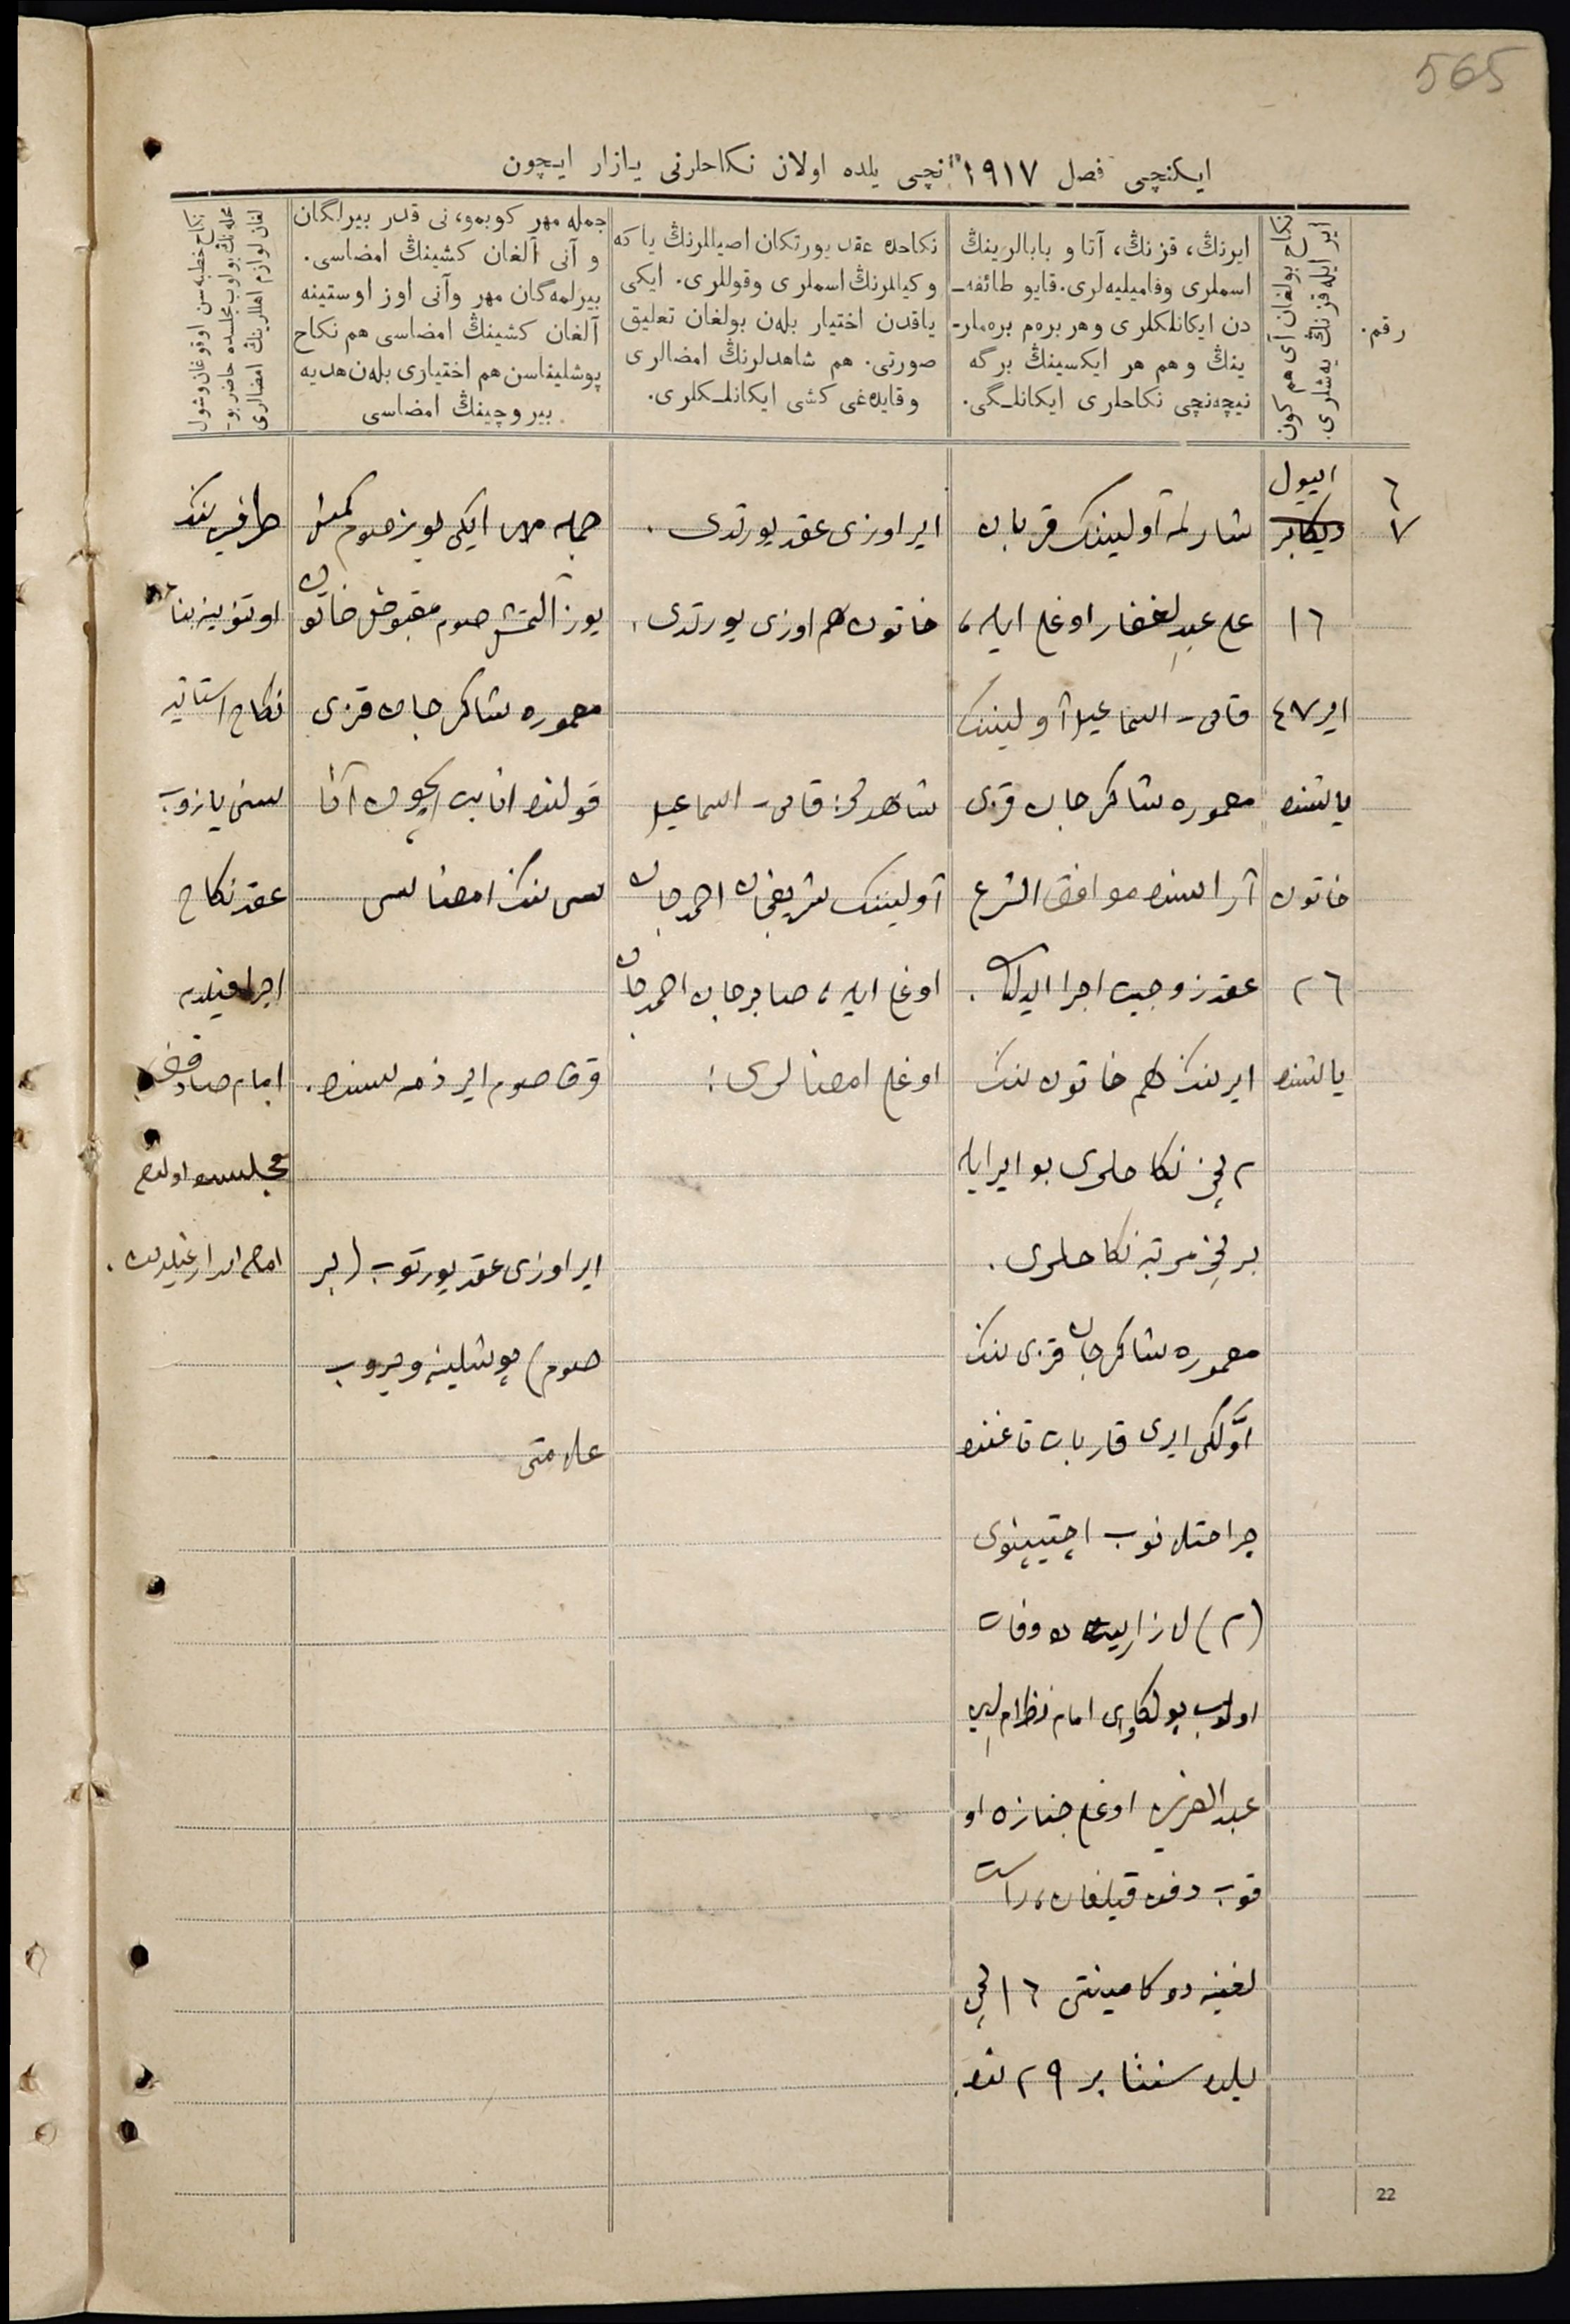 565
ایکنچی فصل ۱۹۱۷ نچی یلده اولان نکاحلرنی یازار ایچون
رقم.
نکاح بولغان آی هم کون
ایر ایله قزنڭ یه‌شلری.
ایرنڭ، قزنڭ، آتا و بابالرینڭ
اسملری وفامیلیه‌لری. قایو طائفه‌ـ
دن ایکانلکلری و هر بره‌م بره‌ملر-
ینڭ و هم هر ایکسینڭ برگه
نیچه‌نچی نکاحلری ایکانلـگی.
نکاحده عقد یورتکان اصیللرنڭ یا که
وکیللرنڭ اسملری وقوللری. ایکی
یاقدن اختیار بله‌ن بولغان تعلیق
صورتی. هم شاهدلرنڭ امضالری
وقایده‌غی کشی ایکانلـکلری.
جمله مهر کوبمو، نی قدر بیرلگان
و آنی آلغان کشینڭ امضاسی.
بیرلمه‌گان مهر وآنی اوز اوستینه
آلغان کشینڭ امضاسی هم نکاح
پوشلیناسن هم اختیاری بله‌ن هدیه
بیروچینڭ امضاسی
نکاح خطبه‌سن اوقوغان وشول
محله‌نڭ بولوب مجلسده حاضر بو-
لغان لوازم اهللرینڭ امضالری
٦
٧
اییول
دیکابر
١٦
ایر ٤٧
یاشنده
خاتون
٢٦
یاشنده
شارلمه آولیننک قربان
علی عبدالغفار اوغلی ایله،
قامی - اسماعیل آولیننک
معموره شاکرجان قزی
آراسنده موافق الشرع
عقد زوجیت اجرا ایدلدی.
ایرننک هم خاتون ننک
٢ نچی نکاحلری بو ایر ایله
برنچی مرتبه نکاحلری.
معموره شاکرجان قزی ننک
اوّلگی ایری قارپات تاغنده
جراحتلانوب
(٢) لازاریتده وفات
اولوب پولکاوای امام
عبدالعزیز اوغلی جنازه او
قوب دفن قیلغان، راست
لغینه دوکامینتی ١٦ نچی
یلده سنتابر ٢٩ نده
ایر اوزی عقد یورتدی.
خاتون هم اوزی یورتدی.
شاهدلر: قامی - اسماعیل
آولیننک شریفجان احمدجان
اوغلی ایله، صابرجان احمدجان
اوغلی امضالری:
جمله مهر ایکی یوز صوم کمش
یوز آلتمش صوم مقبوض خاتون
معموره شاکرجان قزی
قولنده اثابت ایچون آتا
سی ننک امضاسی
قرق صوم ایر ذمه سنده.
ایر اوزی عقد یورتوب (بر
صوم) پوشلینه ویروب
علامتی
طرفین ننک
اوتنوینه بنا
نکاح
سنی یازوب
عقد نکاح
اجرا قیلدم
امام
مجلسده
22